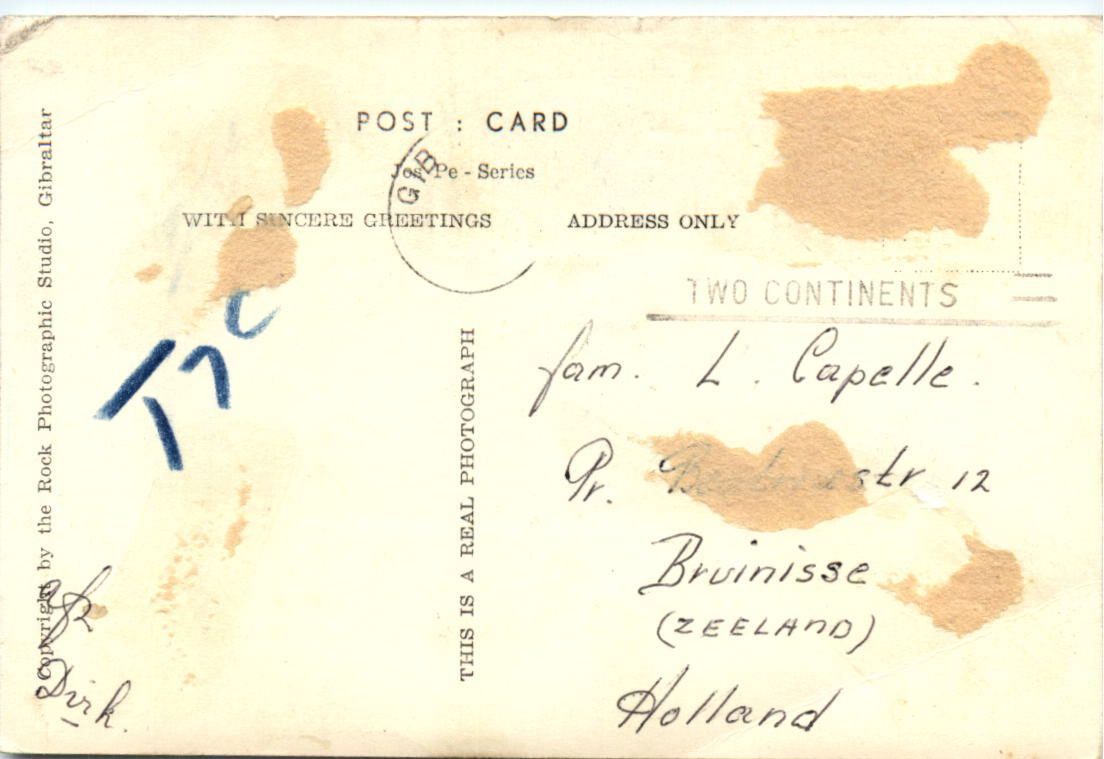 POST : CARD
Jos Pe - Series
WITH SINCERE GREETINGS
ADDRESS ONLY
GIB
TWO CONTINENTS
Copyright by the Rock Photographic Studio, Gibraltar
THIS IS A REAL PHOTOGRAPH
fam. L. Capelle.
Pr. str 12
Bruinisse
(ZEELAND)
Holland
Dirk.